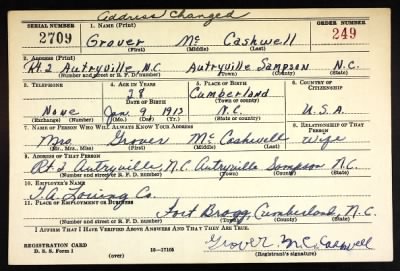 Address Changed
SERIAL NUMBER 1. NAME (Print) ORDER NUMBER
2709 Grover Mc Cashwell 249
(First) (Middle) (Last)
2. ADDRESS (Print)
Rt. 2 Autryville N.C. Autryville Sampson N.C.
(Number and street or R. F. D. number) (Town) (County) (State)
3. TELEPHONE 4. AGE IN YEARS 5. PLACE OF BIRTH 6. COUNTRY OF CITIZENSHIP
28 Cumberland
DATE OF BIRTH (Town or county)
None Jan. 9 1913 N.C. U.S.A.
(Exchange) (Number) (Mo.) (Day) (Yr.) (State or country)
7. NAME OF PERSON WHO WILL ALWAYS KNOW YOUR ADDRESS 8. RELATIONSHIP OF THAT PERSON
Mrs. Grover Mc Cashwell Wife
(Mr., Mrs., Miss) (First) (Middle) (Last)
9. ADDRESS OF THAT PERSON
Rt. 2 Autryville, N.C. Autryville Sampson N.C.
(Number and street or R. F. D. number) (Town) (County) (State)
10. EMPLOYER'S NAME
T.A. Loving Co.
11. PLACE OF EMPLOYMENT OR BUSINESS
Fort Bragg, Cumberland, N.C.
(Number and street or R. F. D. number) (Town) (County) (State)
I AFFIRM THAT I HAVE VERIFIED ABOVE ANSWERS AND THAT THEY ARE TRUE.
REGISTRATION CARD
D. S. S. Form 1 (over) 16—17105 Grover Mc. Cashwell
(Registrant's signature)